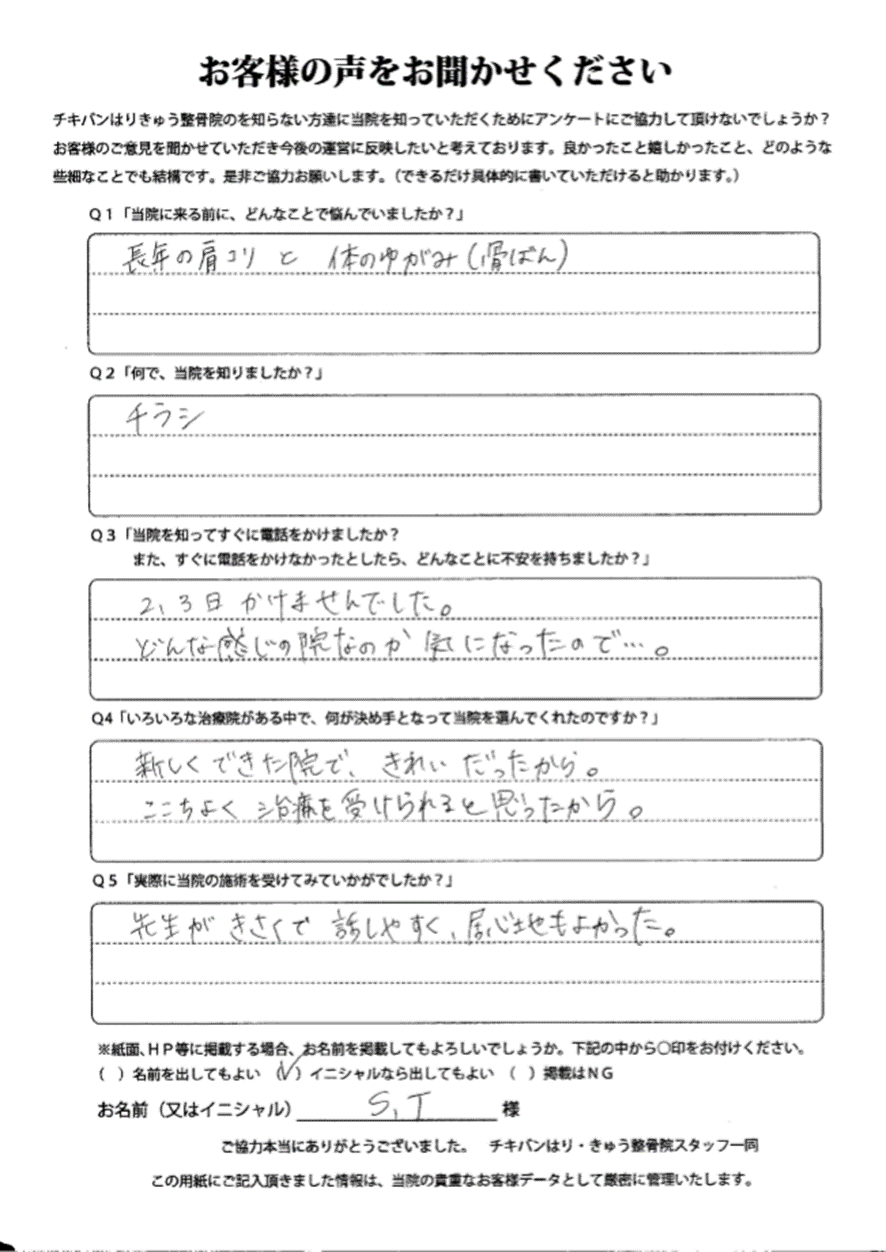 お客様の声をお聞かせください
チキバンはりきゅう整骨院のを知らない方達に当院を知っていただくためにアンケートにご協力して頂けないでしょうか?
お客様のご意見を聞かせていただき今後の運営に反映したいと考えております。良かったこと嬉しかったこと、どのような
些細なことでも結構です。是非ご協力お願いします。(できるだけ具体的に書いていただけると助かります。)
Q1「当院に来る前に、どんなことで悩んでいましたか?」
長年の肩コリ と 体のゆがみ(骨ばん)
Q2「何で、当院を知りましたか?」
チラシ
Q3「当院を知ってすぐに電話をかけましたか?
また、すぐに電話をかけなかったとしたら、どんなことに不安を持ちましたか?」
2、3日 かけませんでした。
どんな感じの院なのか 気になったので…。
Q4「いろいろな治療院がある中で、何が決め手となって当院を選んでくれたのですか?」
新しくできた院で、きれいだったから。
ここちよく 治療を受けられると思ったから。
Q5「実際に当院の施術を受けてみていかがでしたか?」
先生が きさくで 話しやすく、居心地もよかった。
※紙面、HP等に掲載する場合、お名前を掲載してもよろしいでしょうか。下記の中から○印をお付けください。
( )名前を出してもよい (✓)イニシャルなら出してもよい ( )掲載はNG
お名前(又はイニシャル) S,T 様
ご協力本当にありがとうございました。 チキバンはり・きゅう整骨院スタッフ一同
この用紙にご記入頂きました情報は、当院の貴重なお客様データとして厳密に管理いたします。